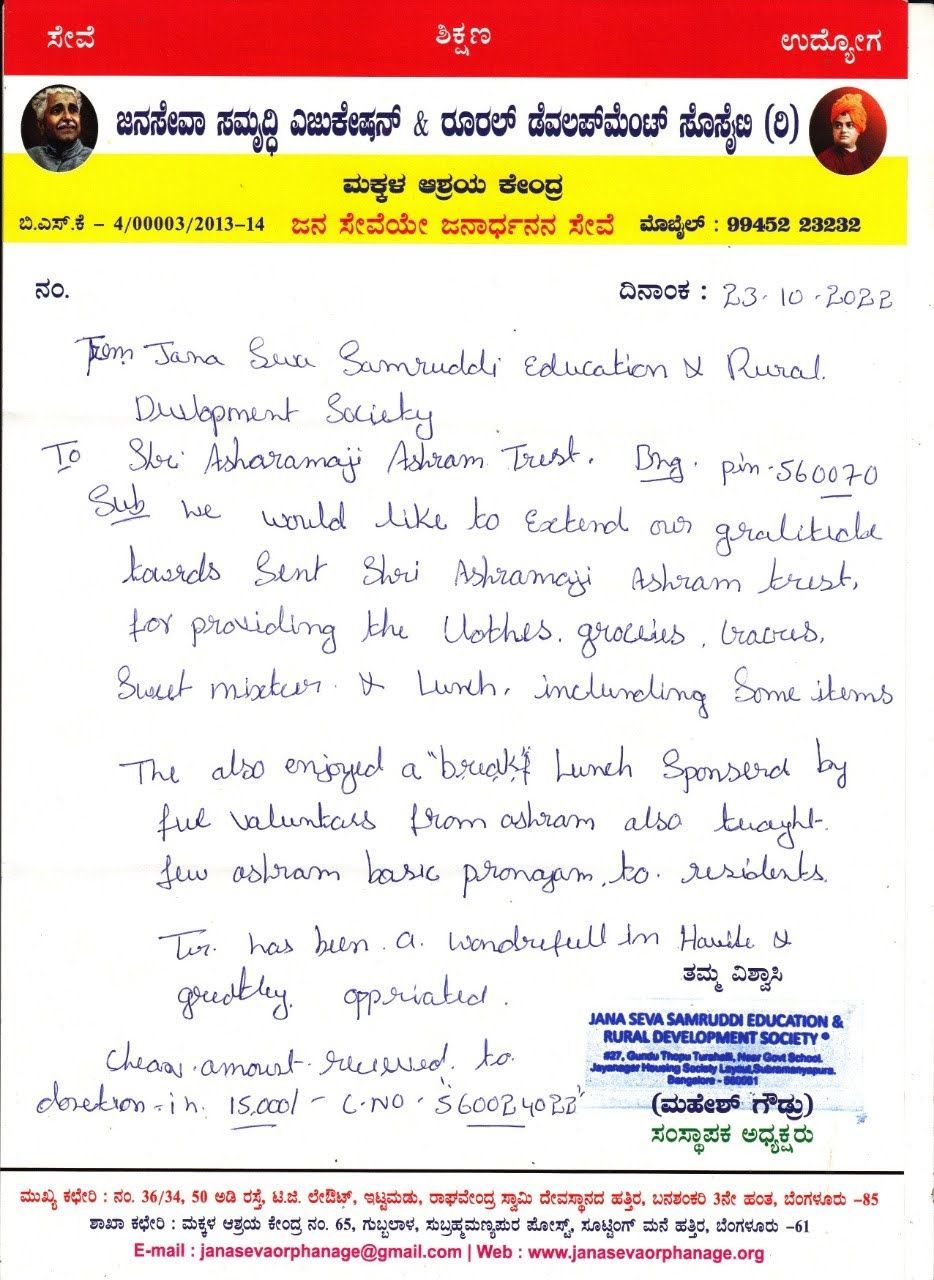 ಸೇವೆ ಶಿಕ್ಷಣ ಉದ್ಯೋಗ
ಜನಸೇವಾ ಸಮೃದ್ಧಿ ಎಜುಕೇಷನ್ & ರೂರಲ್ ಡೆವಲಪ್‌ಮೆಂಟ್ ಸೊಸೈಟಿ (ರಿ)
ಮಕ್ಕಳ ಆಶ್ರಯ ಕೇಂದ್ರ
ಬಿ.ಎಸ್.ಕೆ – 4/00003/2013–14 ಜನ ಸೇವೆಯೇ ಜನಾರ್ಧನನ ಸೇವೆ ಮೊಬೈಲ್ : 99452 23232
ನಂ. ದಿನಾಂಕ : 23-10-2022
From Jana Seva Samruddi Education & Rural
Society
To Shri Asharamaji Ashram Trust. Bng. pin-560070
Sub we would like to Extend our
towards Sent Shri Ashramaji Ashram trest,
for providing the groceies,
Sweet & Lunch, inclunding Some items
The also enjoyed a "break" Lunch Sponserd by
from ashram also
few ashram basic pronayam, to residents.
has been a wondrefull in &
ತಮ್ಮ ವಿಶ್ವಾಸಿ
JANA SEVA SAMRUDDI EDUCATION &
RURAL DEVELOPMENT SOCIETY
#27, Gundu Thopu Turahalli, Near Govt School.
Jayanagar Housing Society Layout, Subramanyapura.
Bangalore - 560061
amount received to
in 15,000/- C.NO - "560024022"
(ಮಹೇಶ್ ಗೌಡ್ರು)
ಸಂಸ್ಥಾಪಕ ಅಧ್ಯಕ್ಷರು
ಮುಖ್ಯ ಕಛೇರಿ : ನಂ. 36/34, 50 ಅಡಿ ರಸ್ತೆ, ಟಿ.ಜಿ. ಲೇಔಟ್, ಇಟ್ಟಮಡು, ರಾಘವೇಂದ್ರ ಸ್ವಾಮಿ ದೇವಸ್ಥಾನದ ಹತ್ತಿರ, ಬನಶಂಕರಿ 3ನೇ ಹಂತ, ಬೆಂಗಳೂರು –85
ಶಾಖಾ ಕಛೇರಿ : ಮಕ್ಕಳ ಆಶ್ರಯ ಕೇಂದ್ರ ನಂ. 65, ಗುಬ್ಬಲಾಳ, ಸುಬ್ರಹ್ಮಣ್ಯಪುರ ಪೋಸ್ಟ್, ಸೂಟ್ಟಿಂಗ್ ಮನೆ ಹತ್ತಿರ, ಬೆಂಗಳೂರು –61
E-mail : janasevaorphanage@gmail.com | Web : www.janasevaorphanage.org